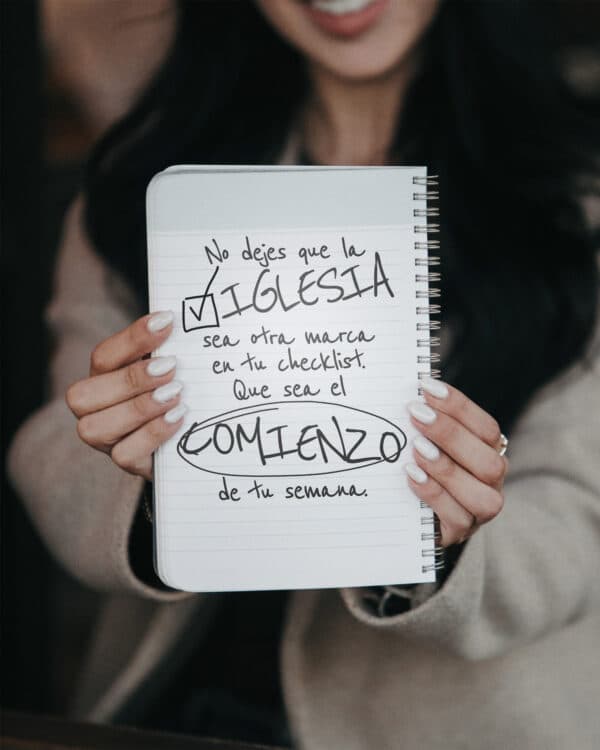 No dejes que la
IGLESIA
sea otra marca
en tu checklist.
Que sea el
COMIENZO
de tu semana.